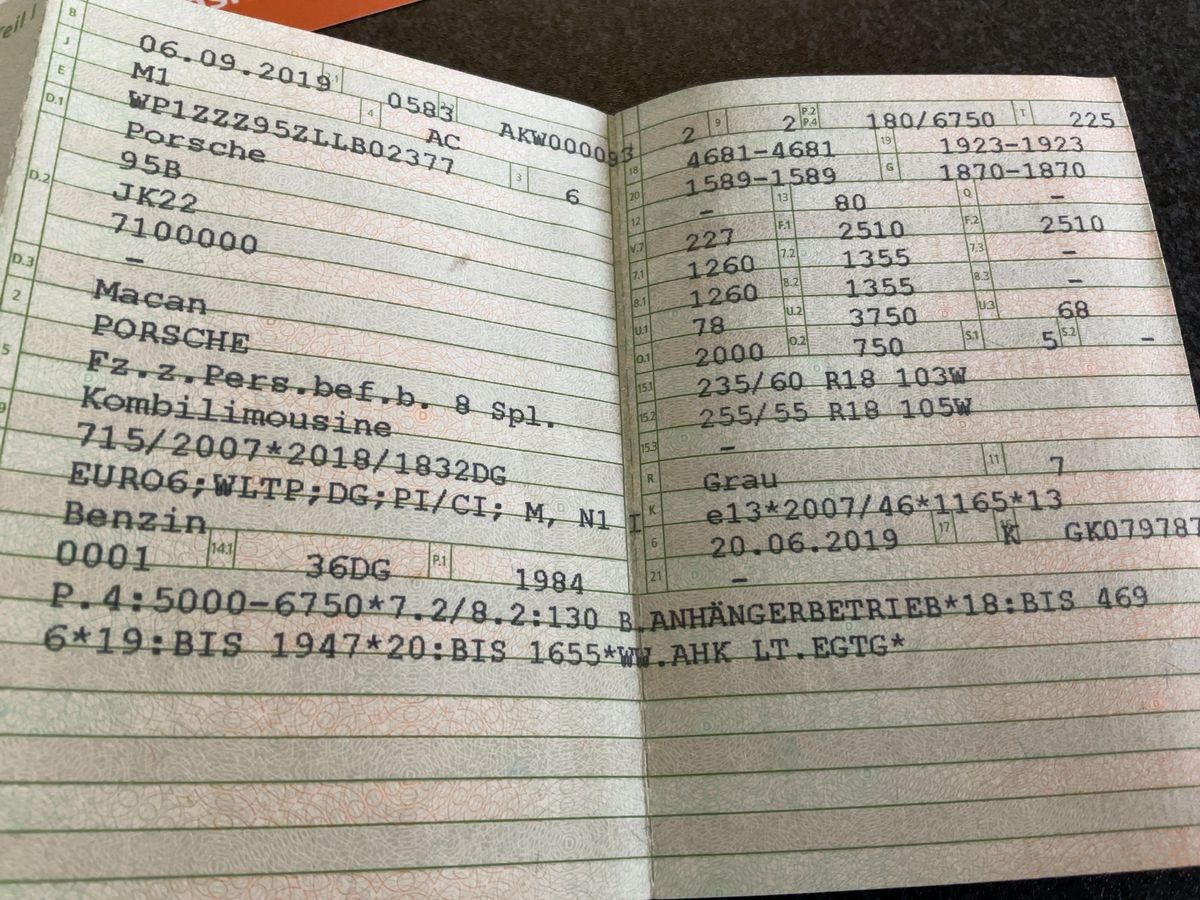 eil I
B 06.09.2019 0583 AKW000093
J M1 4 AC
E WP1ZZZ95ZLLB02377 3 6
D.1 Porsche
D.2 95B
JK22
7100000
–
D.3 Macan
2 PORSCHE
5 Fz.z.Pers.bef.b. 8 Spl.
Kombilimousine
9 715/2007*2018/1832DG
EURO6;WLTP;DG;PI/CI; M, N1 I
Benzin
0001 14.1 36DG P.1 1984
P.4:5000-6750*7.2/8.2:130 B.ANHÄNGERBETRIEB*18:BIS 469
6*19:BIS 1947*20:BIS 1655*WW.AHK LT.EGTG*
2 9 2 P.2 P.4 180/6750 T 225
18 4681-4681 19 1923-1923
20 1589-1589 G 1870-1870
12 – 13 80 Q –
V.7 227 F.1 2510 F.2 2510
7.1 1260 7.2 1355 7.3 –
8.1 1260 8.2 1355 8.3 –
U.1 78 U.2 3750 U.3 68
O.1 2000 O.2 750 S.1 5 S.2 –
15.1 235/60 R18 103W
15.2 255/55 R18 105W
15.3 –
R Grau 11 7
K e13*2007/46*1165*13
6 20.06.2019 17 K GK079787
21 –